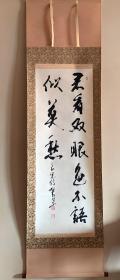 君看双眼色不語
似無愁